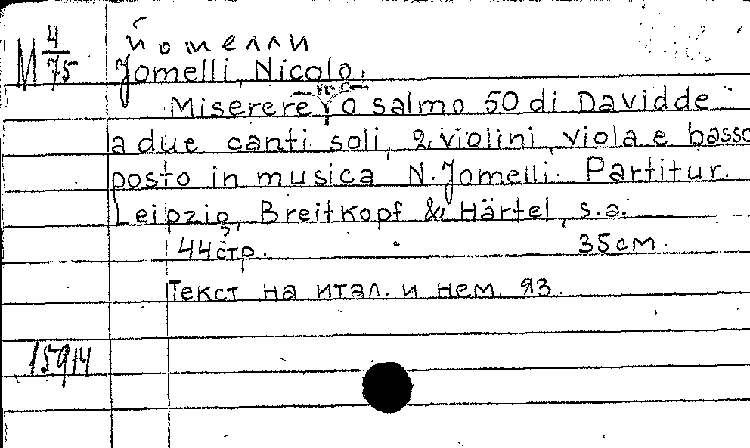 М 4/75
Йомелли
Jomelli, Nicolo.
Miserere o salmo 50 di Davidde
a due canti soli, 2 violini, viola e basso
posto in musica N. Jomelli. Partitur.
Leipzig, Breitkopf & Härtel, s.a.
44 стр. 35 см.
Текст на итал. и нем. яз.
15914